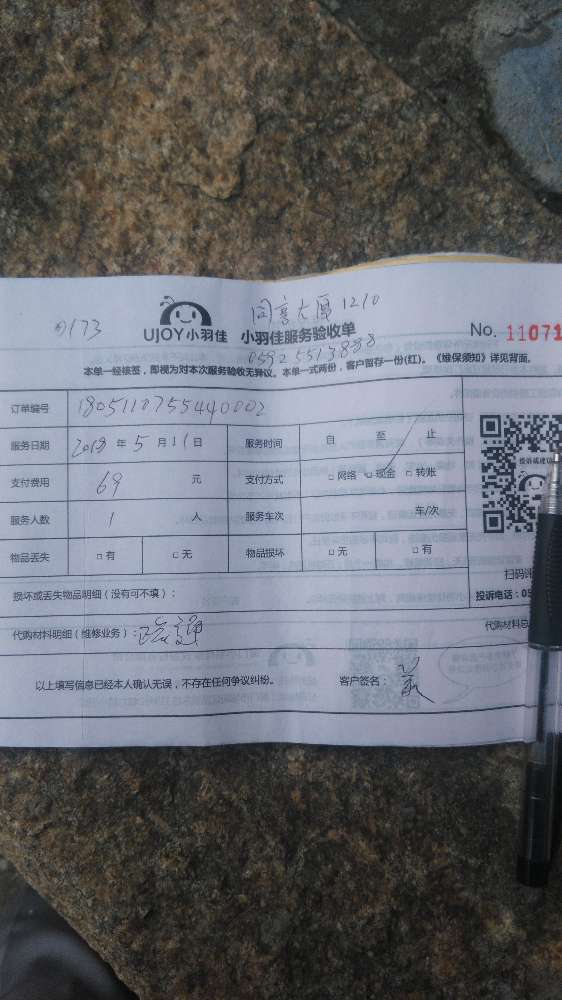 0173 同亨大厦1210
UJOY小羽佳 小羽佳服务验收单 No. 11071
0592 5513888
本单一经核签，即视为对本次服务验收无异议。本单一式两份，客户暂存一份(红)。《维保须知》详见背面。
订单编号 1805110755440002
服务日期 2018 年 5 月 11 日 服务时间 自 至 止
支付费用 69 元 支付方式 □网络 □现金 □转账
服务人数 1 人 服务车次 车/次
物品丢失 □有 □无 物品损坏 □无 □有
投诉或建议
扫码评
损坏或丢失物品明细（没有可不填）： 投诉电话：05
代购材料明细（维修业务）： 疏通 代购材料总
以上填写信息已经本人确认无误，不存在任何争议纠纷。 客户签名：